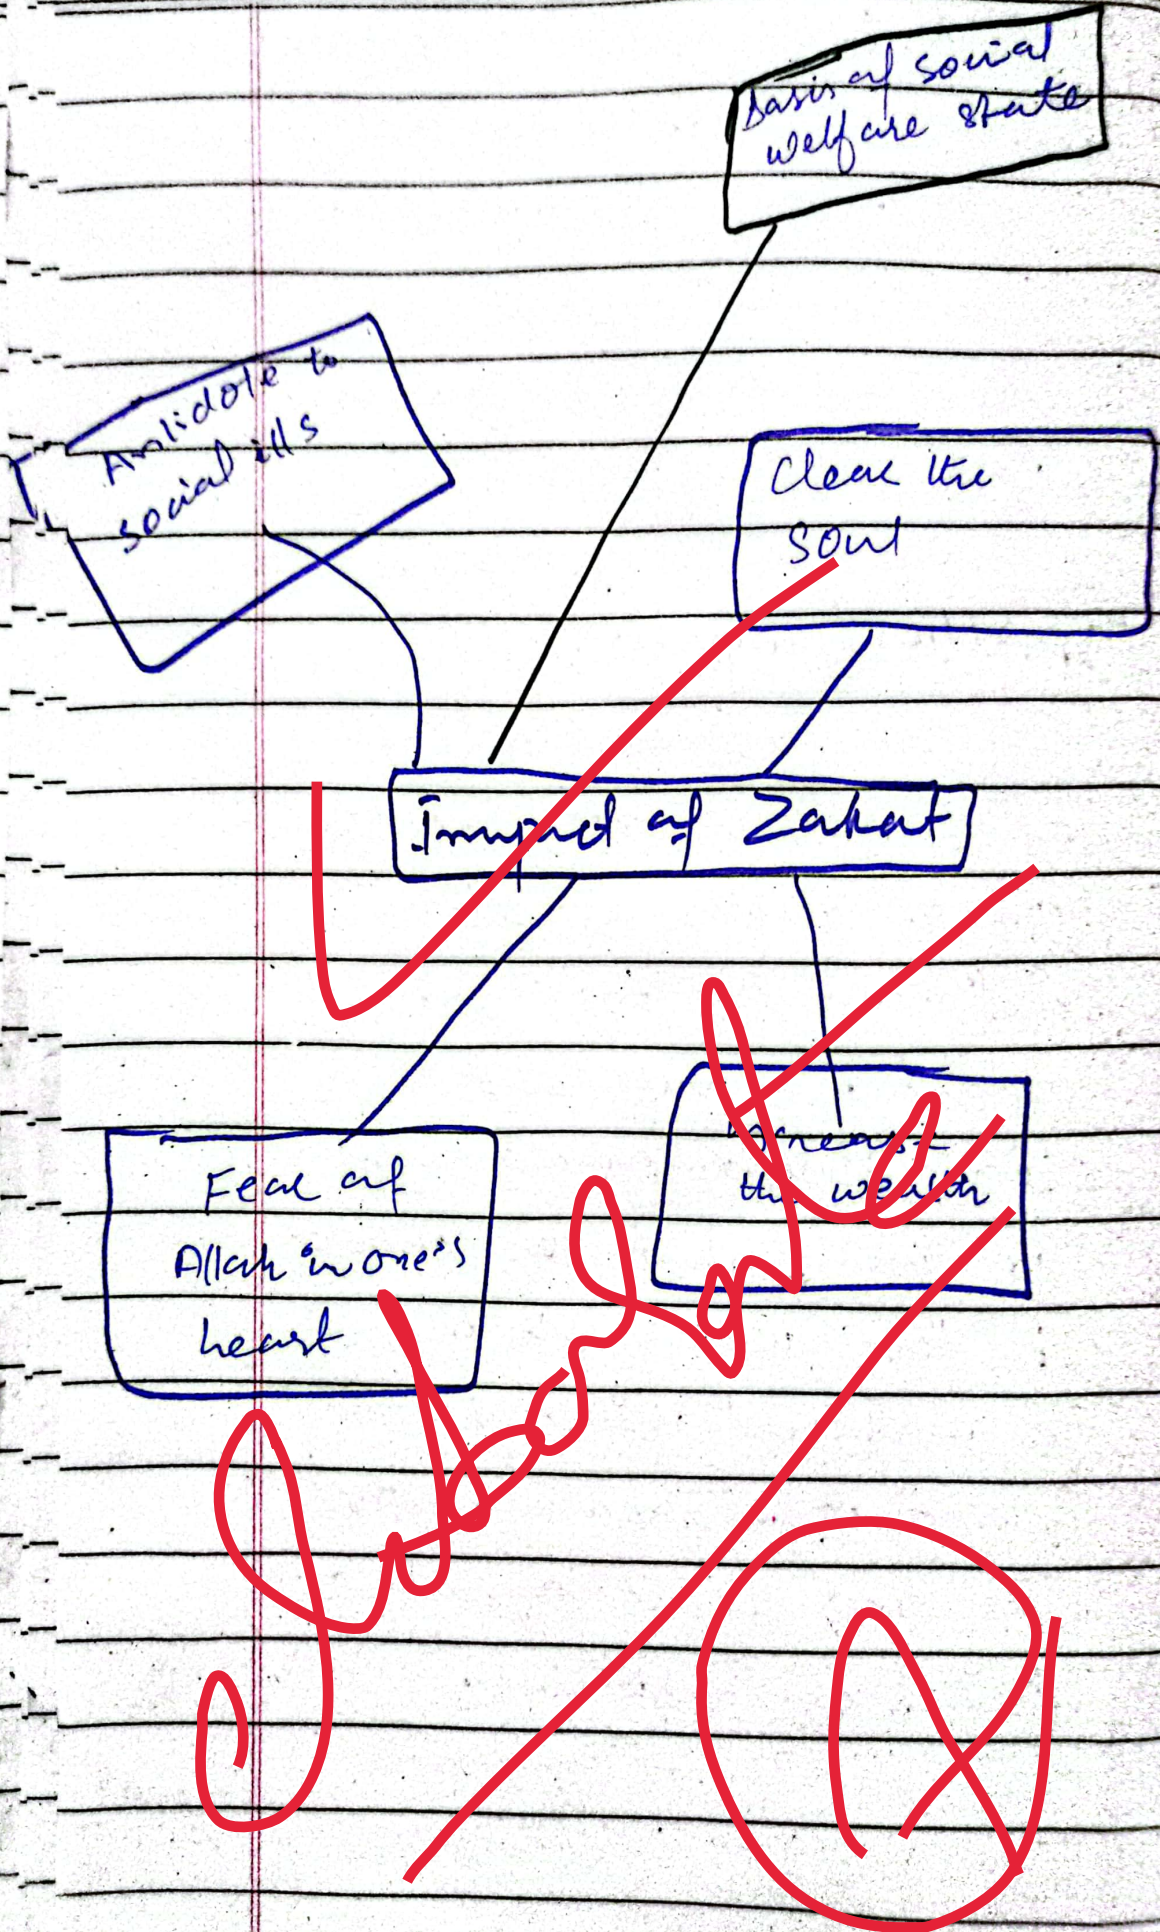 Basis of social
welfare state
Antidote to
social ills
Clear the
soul
Impact of Zakat
Fear of
Allah in one's
heart
Increase
the wealth